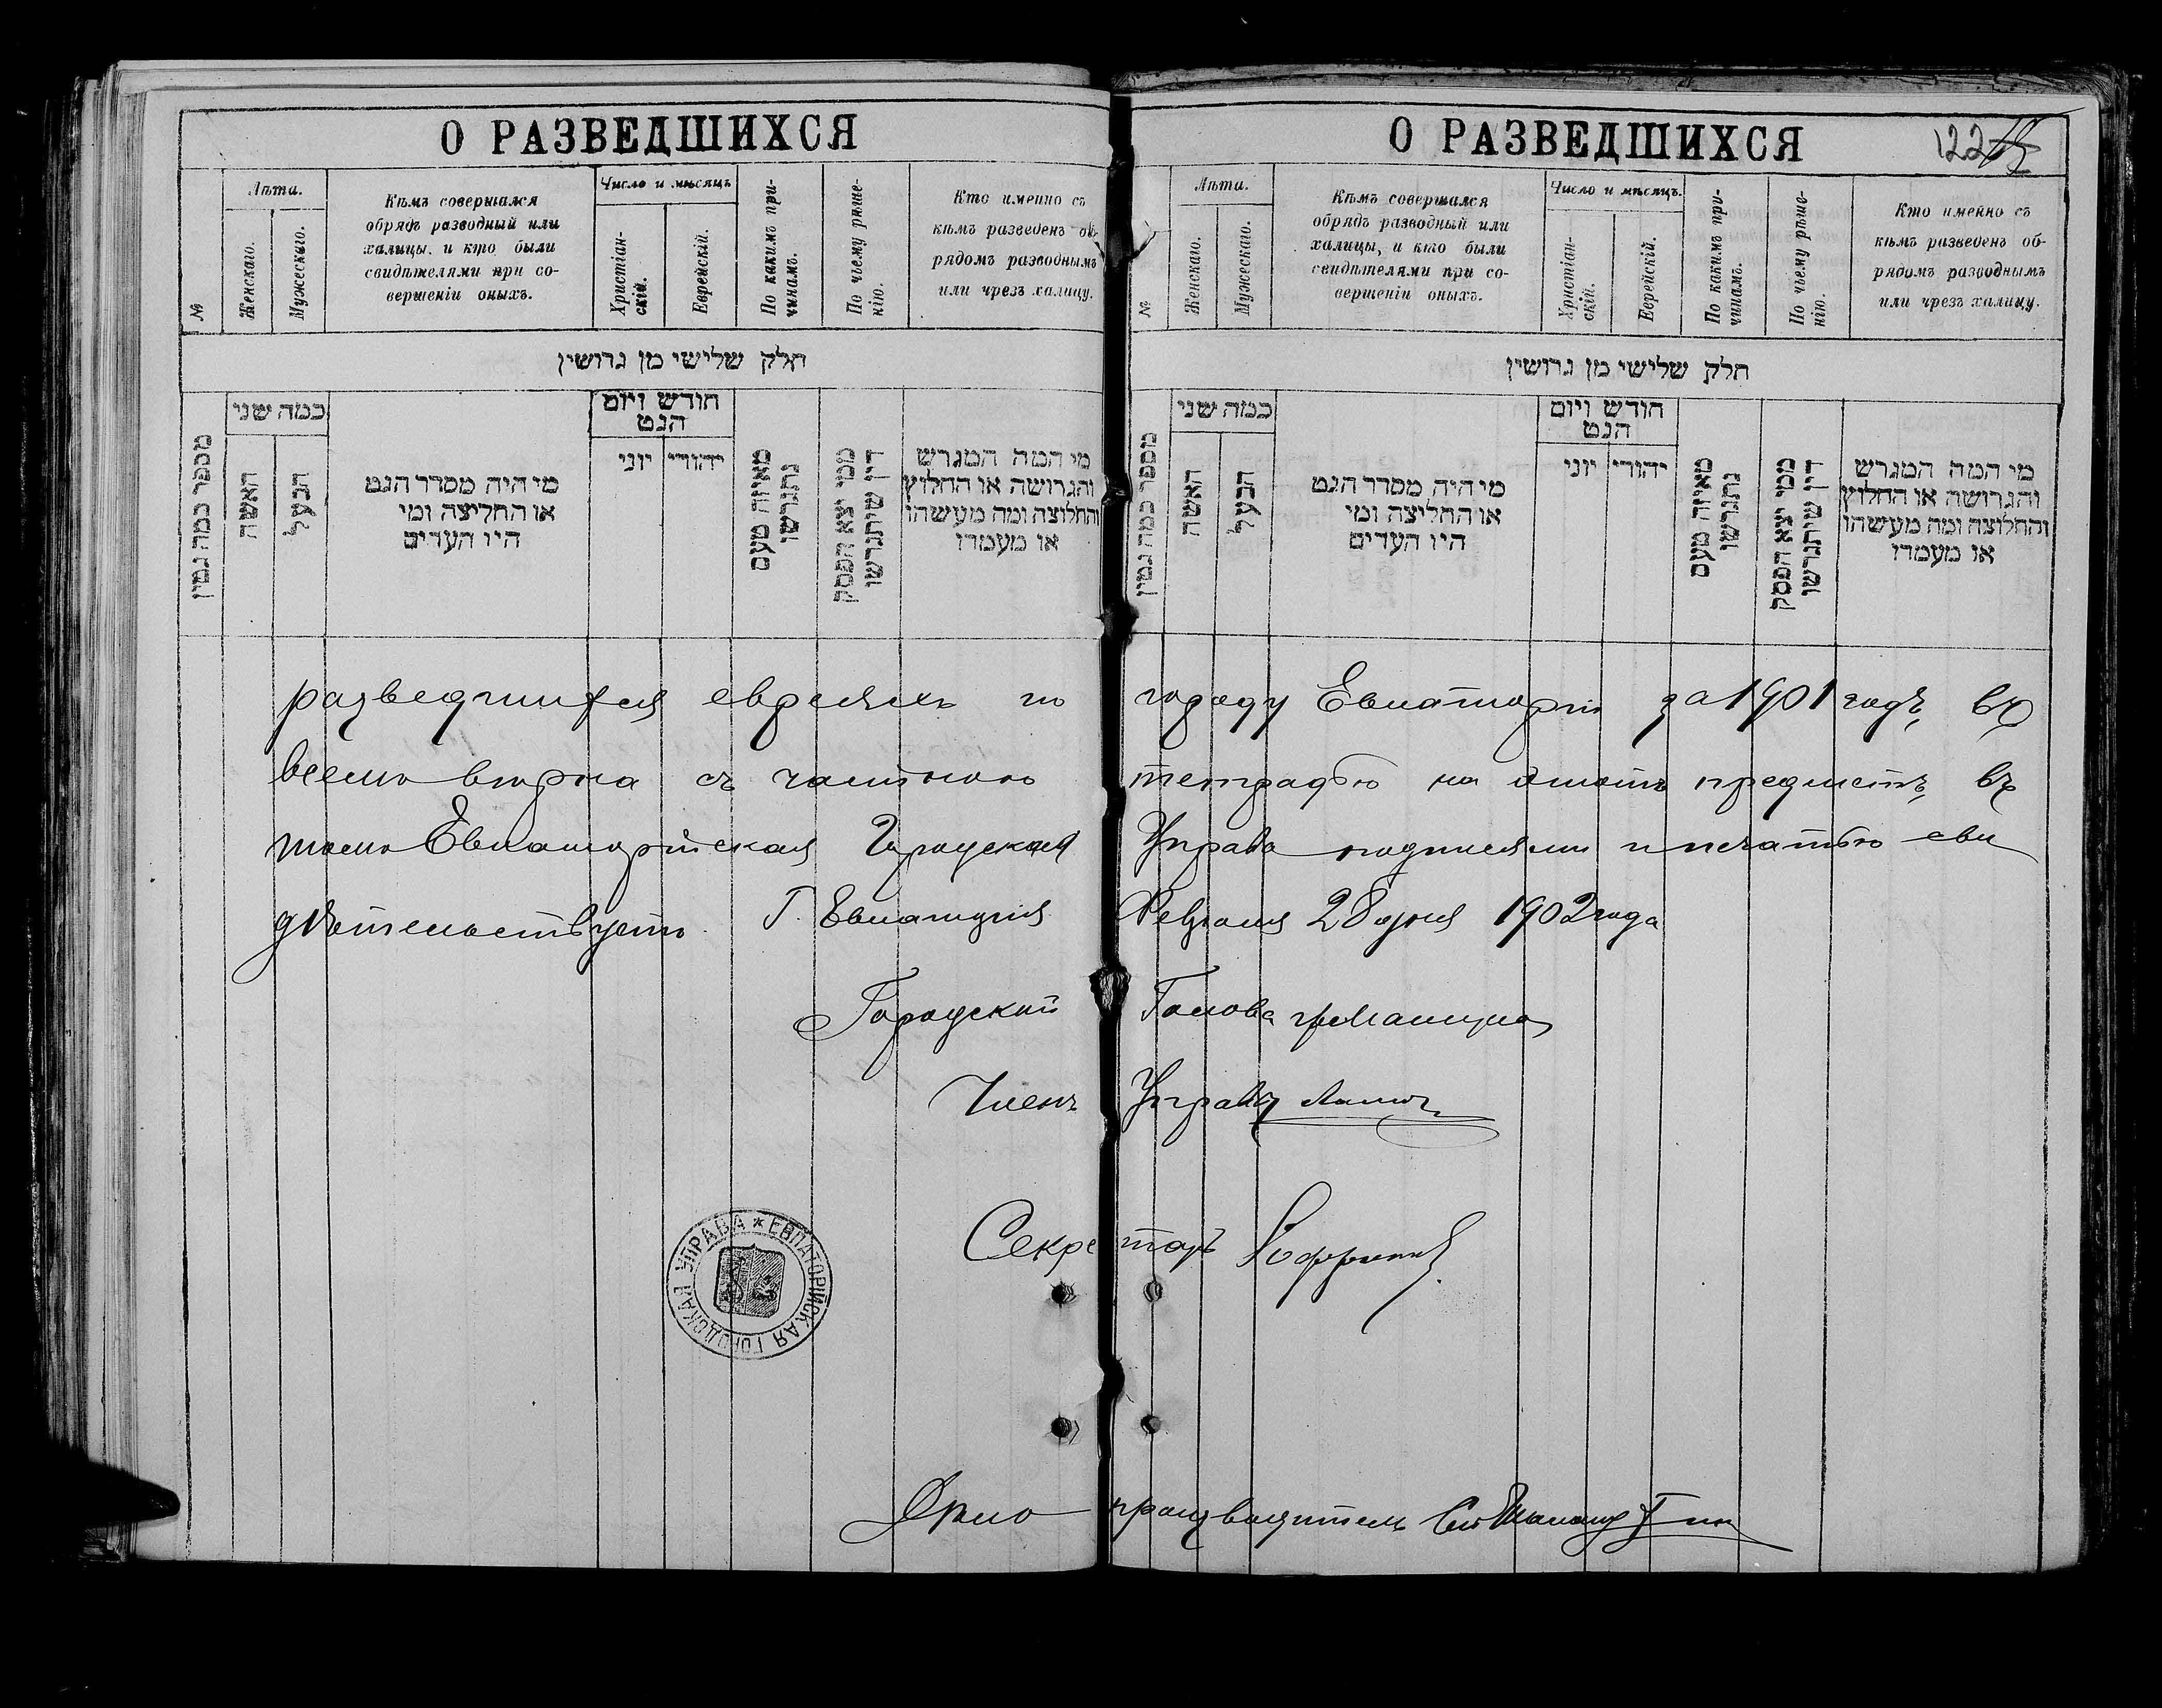 О РАЗВЕДШИХСЯ
№
Лѣта.
Женскаго.
Мужескаго.
Кѣмъ совершался
обрядъ разводный или
халицы, и кто были
свидѣтелями при со-
вершеніи оныхъ.
Число и мѣсяцъ
Христіан-
скій.
Еврейскій.
По какимъ при-
чинамъ.
По чьему рѣше-
нію.
Кто именно съ
кѣмъ разведенъ об-
рядомъ разводнымъ
или чрезъ халицу.
חלק שלישי מן גרושין
מספר כמה גטין
כמה שני
האשה
הבעל
מי היה מסדר הגט
או החליצה ומי
היו העדים
חודש ויום
הגט
יוני
יהודי
מאיזה טעם
נתגרשו
ממי יצא הפסק
דין שיתגרשו
מי המה המגרש
והגרושה או החלוץ
והחלוצה ומה מעשהו
או מעמדו
О РАЗВЕДШИХСЯ
122
№
Лѣта.
Женскаго.
Мужескаго.
Кѣмъ совершался
обрядъ разводный или
халицы, и кто были
свидѣтелями при со-
вершеніи оныхъ.
Число и мѣсяцъ.
Христіан-
скій.
Еврейскій.
По какимъ при-
чинамъ.
По чьему рѣше-
нію.
Кто именно съ
кѣмъ разведенъ об-
рядомъ разводнымъ
или чрезъ халицу.
חלק שלישי מן גרושין
מספר כמה גטין
כמה שני
האשה
הבעל
מי היה מסדר הגט
או החליצה ומי
היו העדים
חודש ויום
הגט
יוני
יהודי
מאיזה טעם
נתגרשו
ממי יצא הפסק
דין שיתגרשו
מי המה המגרש
והגרושה או החלוץ
והחלוצה ומה מעשהו
או מעמדו
разведшихся евреяхъ по городу Евпаторіи за 1901 годъ, во
всемъ вѣрна съ частною тетрадью на этотъ предметъ, въ
томъ Евпаторійская Городская Управа подписями и печатью сви
дѣтельствуетъ. Г. Евпаторія Февраля 28 дня 1902 года
Городской Голова
Членъ Управы
Секретарь
ЕВПАТОРІЙСКАЯ ГОРОДСКАЯ УПРАВА
Дѣлопроизводитель